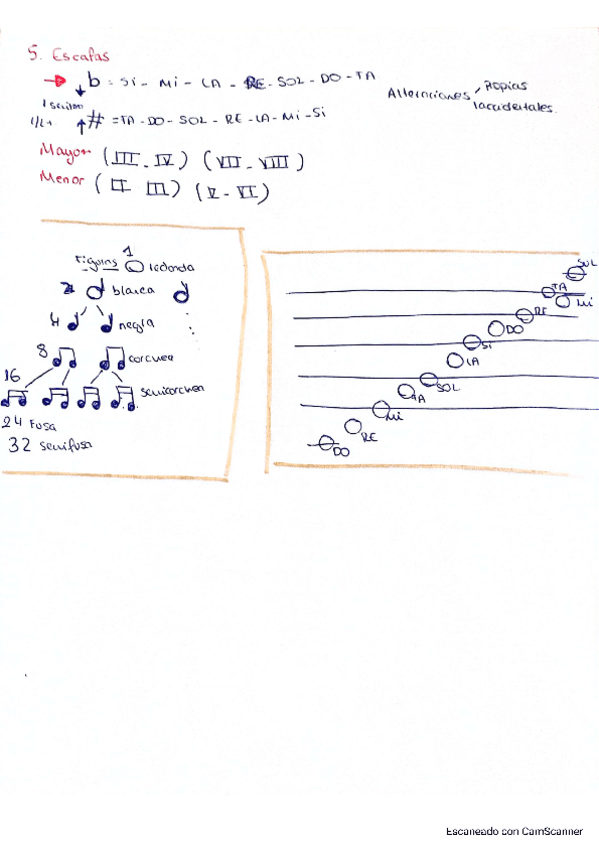 5. Escalas
b = Si - Mi - LA - RE - SOL - DO - TA
Alteraciones Propias
laccidentales.
1 Semitono
1/2 t # = TA - DO - SOL - RE - LA - Mi - Si
Mayor (III - IV) (VII - VIII)
Menor (II III) (V - VI)
Figuras 1 redonda
2 blanca
4 negra
8 corchea
16 semicorchea
24 Fusa
32 semifusa
SOL
TA
Mi
RE
DO
Si
LA
SOL
TA
Mi
RE
DO
Escaneado con CamScanner